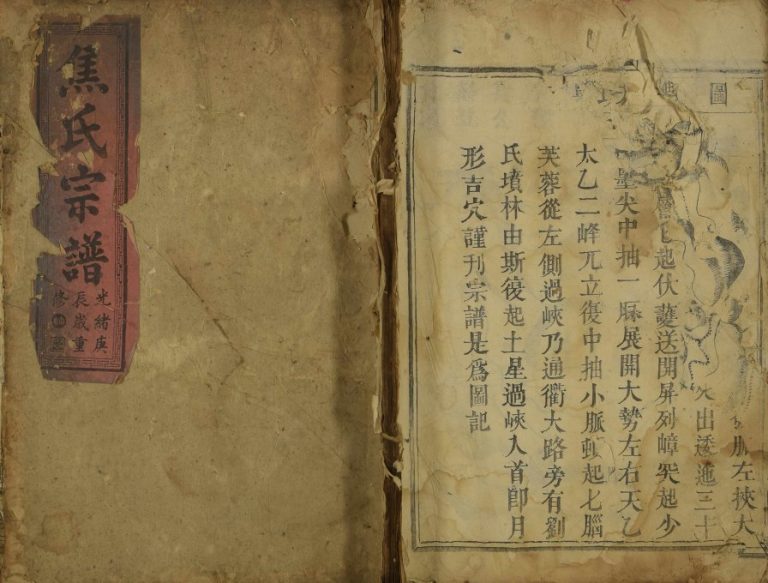 焦氏宗譜
光緒庚
辰歲重
修
圖
脈左挾大
出逶迤三十
起伏護送開屏列嶂突起少
尖中抽一脈展開大勢左右天乙
太乙二峰兀立復中抽小脈頓起七腦
芙蓉從左側過峽乃通衢大路旁有劉
氏墳林由斯復起土星過峽入首卽月
形吉穴謹刊宗譜是爲圖記